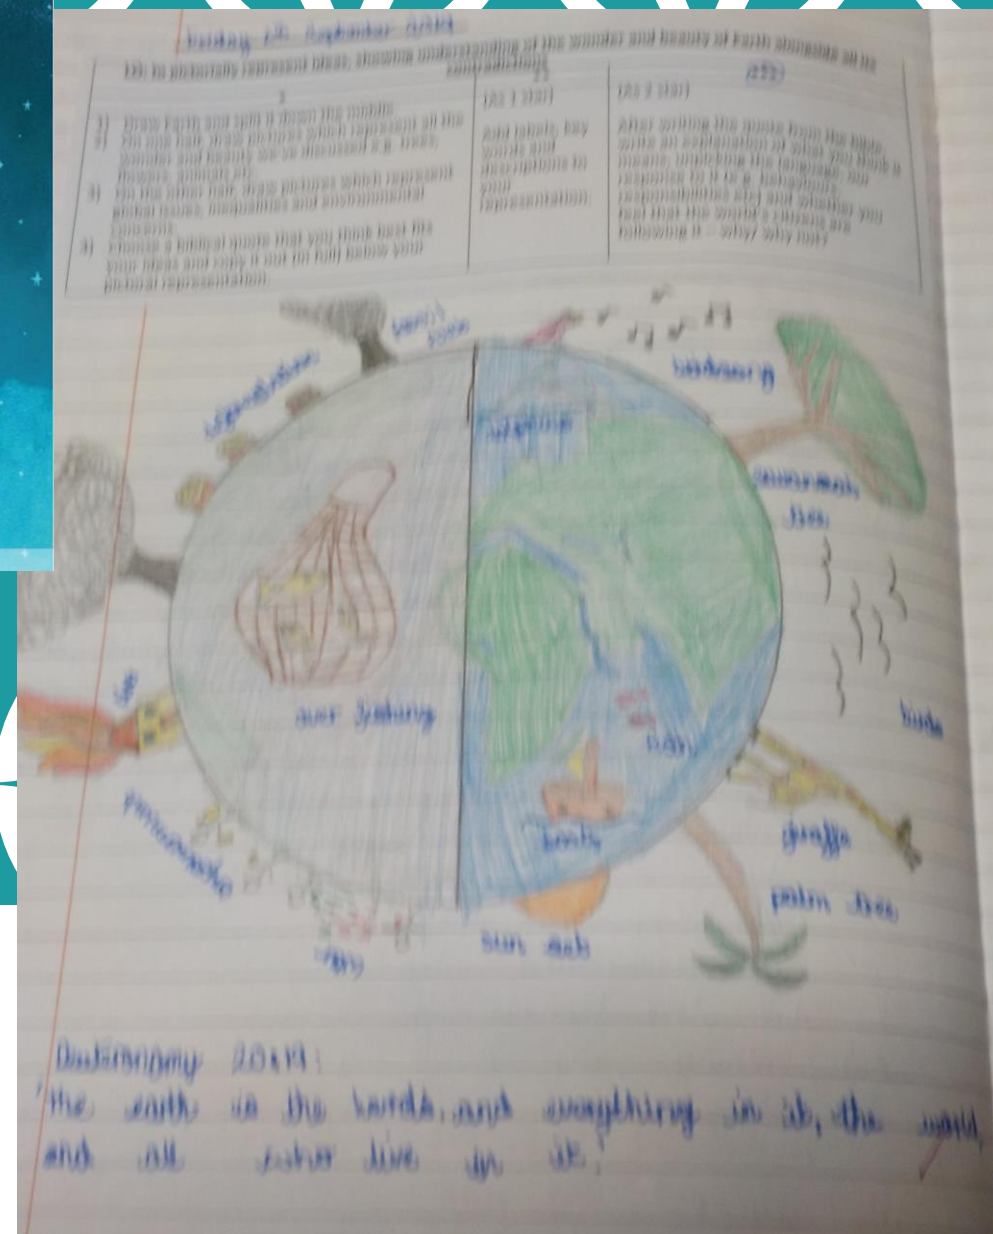 Friday 6th September 2019
LO: to pictorially represent ideas, showing understanding of the wonder and beauty of Earth alongside all its
contradictions
1) Draw Earth and split it down the middle.
2) On one half, draw pictures which represent all the
wonder and beauty we've discussed e.g. trees,
flowers, animals etc.
3) On the other half, draw pictures which represent
global issues, inequalities and environmental
concerns.
4) Choose a biblical quote that you think best fits
your ideas and copy it out (in full) below your
pictorial representation.
(As 1 star)
Add labels, key
words and
descriptions to
your
representation.
(As 2 star)
After writing the quote from the bible,
write an explanation of what you think it
means, unpicking the language, our
response to it (e.g. behaviours,
responsibilities etc) and whether you
feel that the world's citizens are
following it – why/ why not?
birdsong
savannah
tree
over fishing
fish
boats
birds
giraffe
palm tree
sun set
fire
Deuteronomy
'the earth is the lords, and everything in it, the world,
and all who live in it.'